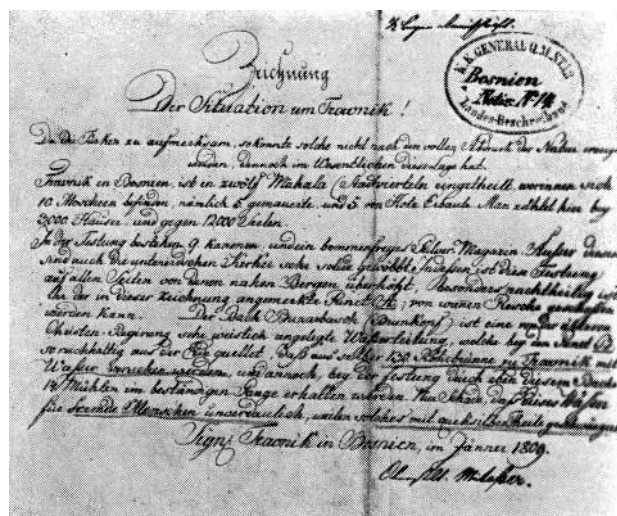 K.K. GENERAL Q.M. STAB
Bosnien
Notiz. Nº 14
Landes-Beschreibung
Zeichnung
Der Situation um Trawnik!
Da die Türken zu aufmerksam, so konnte solche nicht nach den vollen der Natur
werden, dennoch im Wesentlichen diese Lage hat.
Trawnik in Bosnien, ist in zwölf Mahala (Stadtvierteln eingetheilt, worinnen sich
10. Moscheen befinden, nämlich 5. gemauerte, und 5. von Holz Erbaute. Man zählt hier bey
3000 Häuser, und gegen 12000 Seelen.
In der Festung bestehen 9. kanonen, und ein bommenfreyes Pulver Magazin. Außer diesen
sind auch die unterirdischen Kerker sehr solide gewölbt. Indessen ist diese Festung
auf allen Seiten von denen nahen Bergen überhöht, Besonders nachtheilig ist
ihr der in dieser Zeichnung angemerkte Punct, von wanen Resche
werden kann. Der Bach (Brunkopf) ist eine von der älteren
Christen-Regirung sehr weislich angelegte Waßerleitung, welche bey den
so reichhaltig aus der quellet, Daß aus solcher zu Trawnik mit
Waßer versehen werden, und annoch, bey der Festung durch eben diesem Bache
Mühlen im beständigen Gange erhalten werden. Nur Schade, daß dieses
für fremde Menschen unvertraulich, weilen solches mit quecksilber Theile
Sign: Trawnik in Bosnien, im Jänner 1809.